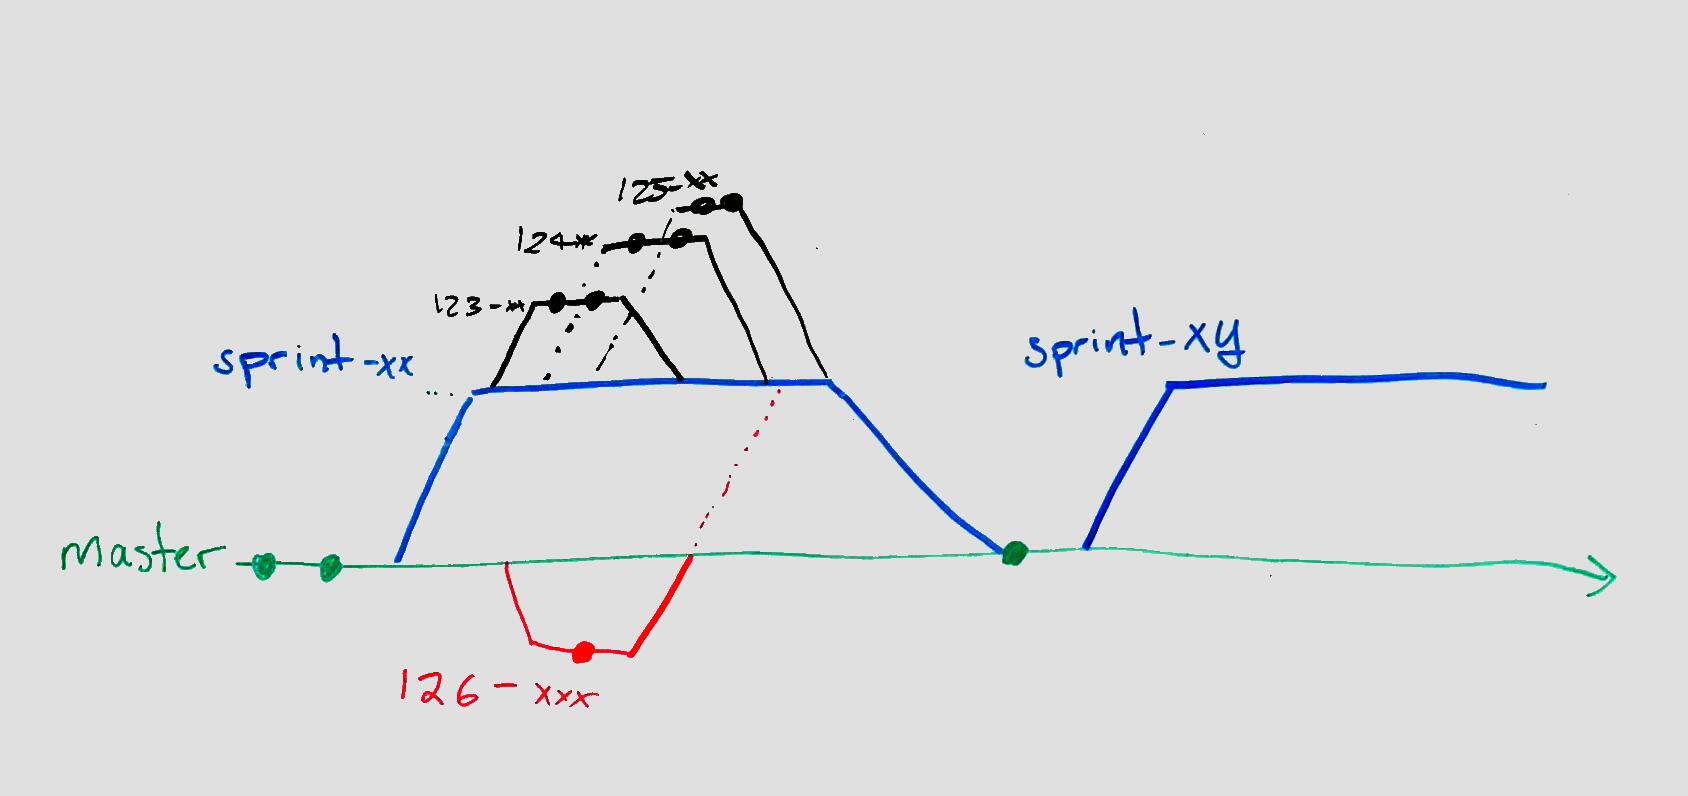 125-xx
124-xx
123-xx
sprint-xx
sprint-xy
master
126-xxx